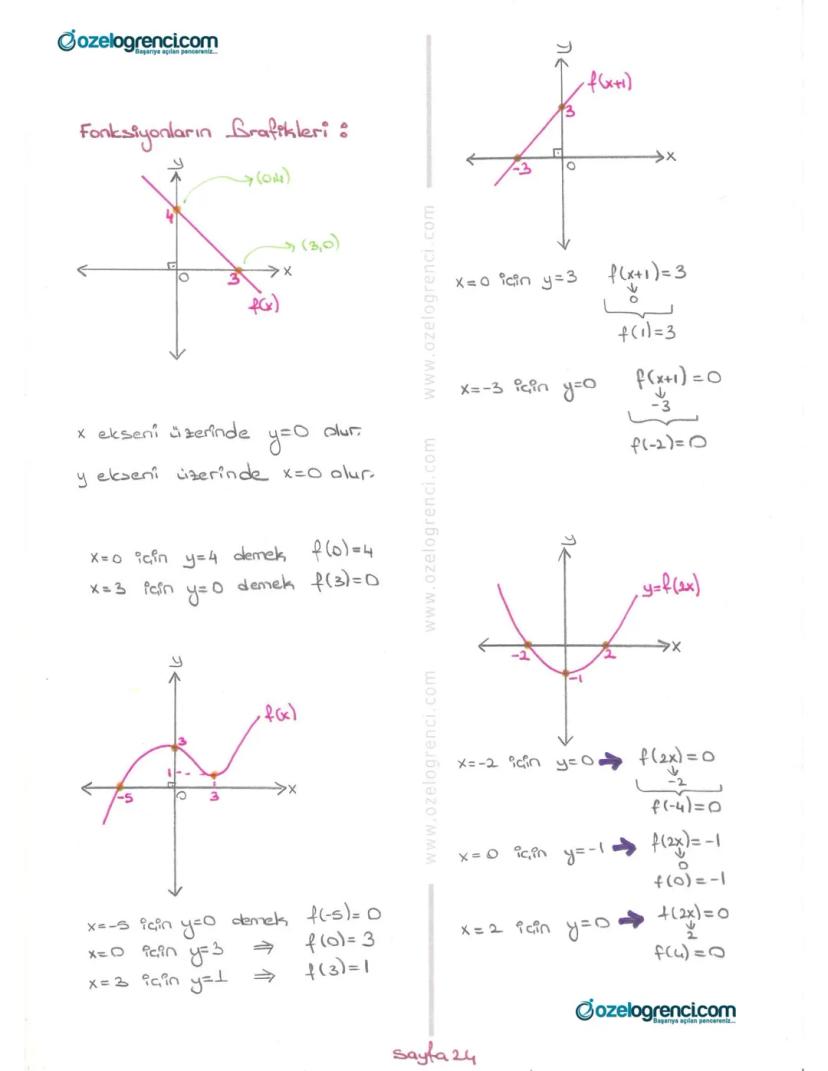 ozelogrenci.com
Başarıya açılan pencereniz...
Fonksiyonların Grafikleri :
y
(0,4)
4
(3,0)
0
3
x
f(x)
x ekseni üzerinde y=0 olur.
y ekseni üzerinde x=0 olur.
x=0 için y=4 demek f(0)=4
x=3 için y=0 demek f(3)=0
y
f(x)
3
1
-5
0
3
x
x=-5 için y=0 demek f(-5)=0
x=0 için y=3 ⇒ f(0)=3
x=3 için y=1 ⇒ f(3)=1
www.ozelogrenci.com
www.ozelogrenci.com
www.ozelogrenci.com
y
f(x+1)
3
-3
0
x
x=0 için y=3 f(x+1)=3
↓
0
f(1)=3
x=-3 için y=0 f(x+1)=0
↓
-3
f(-2)=0
y
y=f(2x)
-2
2
x
-1
x=-2 için y=0 ➡ f(2x)=0
↓
-2
f(-4)=0
x=0 için y=-1 ➡ f(2x)=-1
↓
0
f(0)=-1
x=2 için y=0 ➡ f(2x)=0
↓
2
f(4)=0
ozelogrenci.com
Başarıya açılan pencereniz...
sayfa 24